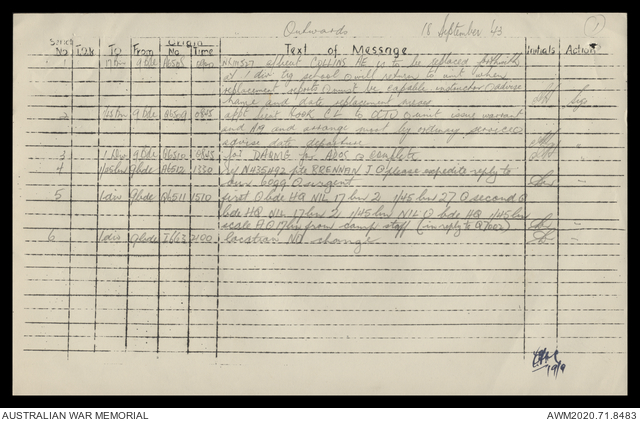 Outwards 18 September '43 1
Serial No I.O.R To From Origin No Time Text of Message Initials Action
1 17 Bn 9 Bde A6508 NX141527 a/Lieut COLLINS HE is to be replaced forthwith
at 1 div bty school O will return to unit when
replacement reports O must be capable instructor O advise
name and date replacement arrives
2 1/45 Bn 9 Bde Q6509 0845 appt Lieut COOK CL to OCTU O unit issue warrant
and A9 and arrange movt by ordinary services O
advise date departure
3 1 Div 9 Bde Q6510 0845 for DAQMG for ADOS O complete
4 1/45 bn 9 bde A6512 1350 my N435492 pte BRENNAN J O please expedite reply to
ours 6099 O urgent
5 1 div 9 bde Q6511 1510 first O bde HQ NIL 17 bn 2 1/45 bn 27 O second O
bde HQ NIL 17 bn 2 1/45 bn NIL O bde HQ 1/45 bn
scale A O from camp staff (in reply to Q7002)
6 1 div 9 bde I663 2100 location NO change
19/9
AUSTRALIAN WAR MEMORIAL AWM2020.71.8483